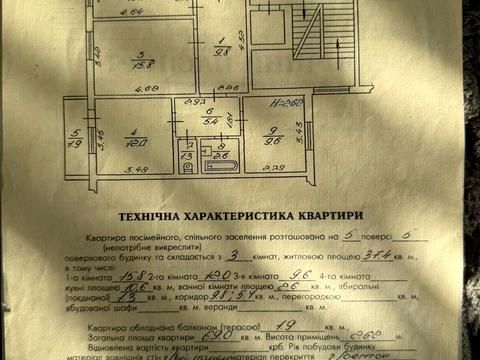 4.64
3.42
3
15.8
1
9.8
4.52
4.62
2.92
2.26
H=262
5
1.9
3.45
4
12.0
6
5.4
1.91
9
9.6
3.43
7
1.3
8
2.6
3.48
2.79
ТЕХНІЧНА ХАРАКТЕРИСТИКА КВАРТИРИ
Квартира посімейного, спільного заселення розташована на 5 поверсі 5
(непотрібне викреслити)
поверхового будинку та складається з 3 кімнат, житловою площею 37.4 кв. м.,
в тому числі:
1-а кімната 15.8 2-га кімната 12.0 3-я кімната 9.6 4-та кімната
кухні площею 10.6 кв. м, ванної кімнати площею 2.6 кв. м., вбиральні
(поєднаної) 1.3 кв. м., коридор 9.8; 5.4 кв. м., перегородкою кв. м.,
вбудованої шафи кв. м. веранди кв. м.
Квартира обладнана балконом (терасою) 1.9 кв. м.
Загальна площа квартири кв. м. Висота приміщень 262 кв. м.
Відновлена вартість квартири крб. Рік побудови будинку
матеріал зовнішніх стін матеріал перекриття